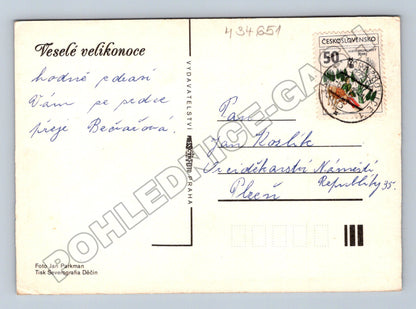 434651
Veselé velikonoce
ČESKOSLOVENSKO
50
hodně zdraví
Vám ze srdce
přeje Bečvářová.
VYDAVATELSTVÍ PRAHA
Pan
Jan Koslik
Náměstí
Republiky 35.
Plzeň
Foto Jan Parkman
Tisk Severografia Děčín
POHLEDNICE-GALERY